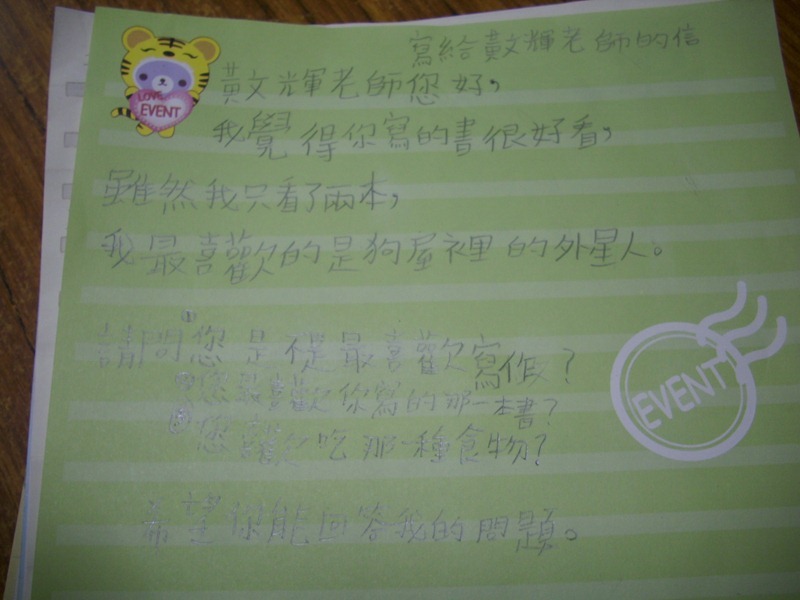 寫給黃文輝老師的信
LOVE
EVENT
黃文輝老師您好,
我覺得你寫的書很好看,
雖然我只看了兩本,
我最喜歡的是狗屋裡的外星人。
請問①您是不是最喜歡寫作?
②您最喜歡你寫的那一本書?
③您喜歡吃那一種食物?
希望你能回答我的問題。
EVENT